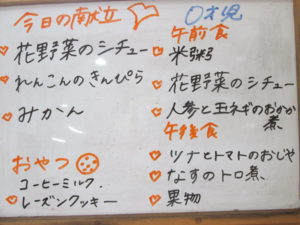 今日の献立
花野菜のシチュー
れんこんのきんぴら
みかん
おやつ
コーヒーミルク.
レーズンクッキー
0才児
午前食
米粥
花野菜のシチュー
人参と玉ネギのおかか煮
午後食
ツナとトマトのおじや
なすのトロ煮
果物